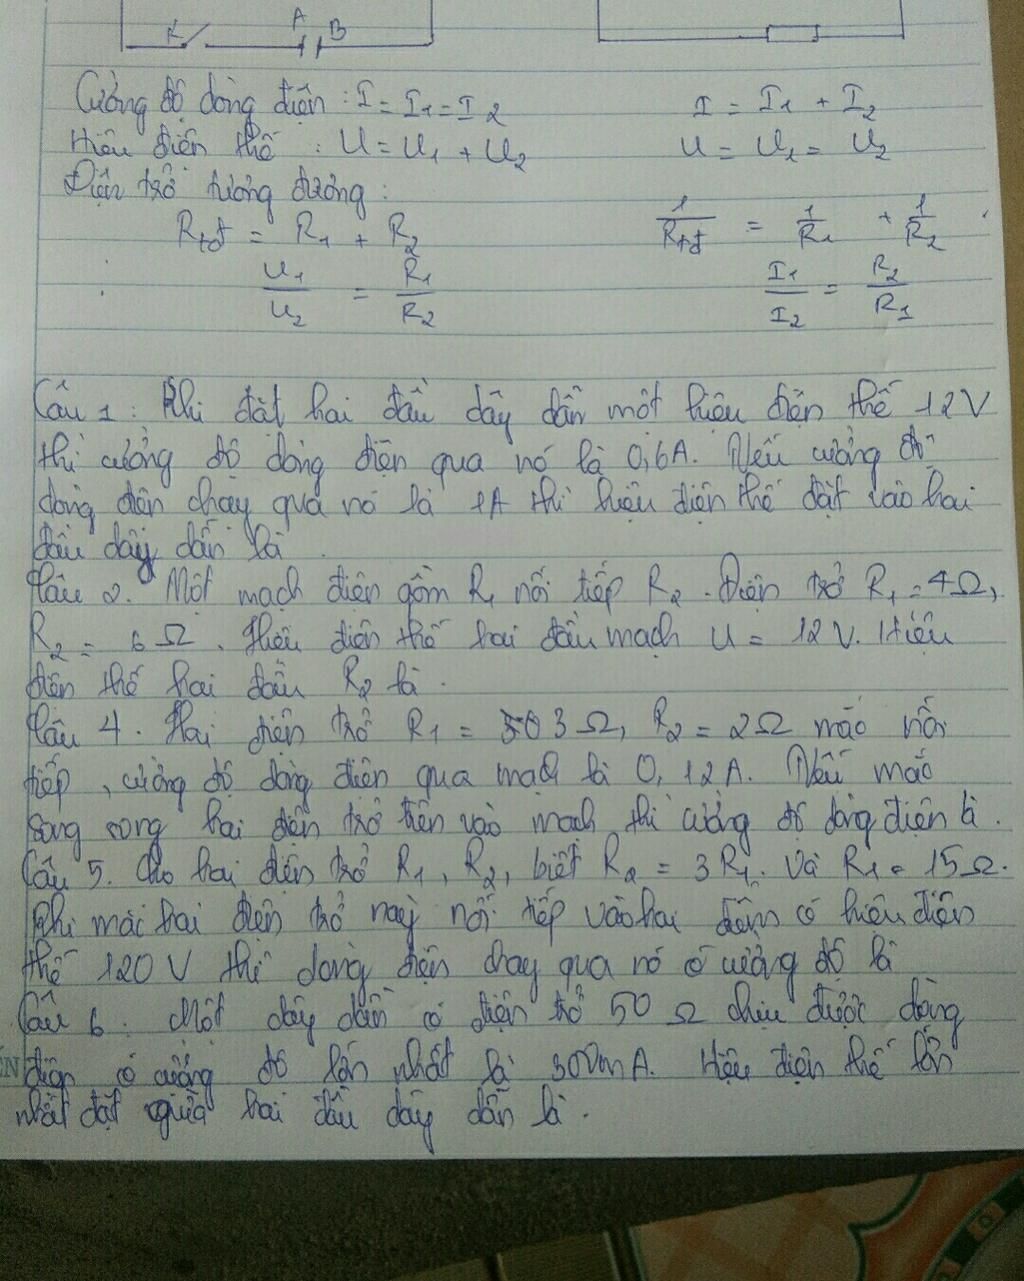 K A B
Cường độ dòng điện : I = I1 = I2 I = I1 + I2
Hiệu điện thế : U = U1 + U2 U = U1 = U2
Điện trở tương đương :
Rtđ = R1 + R2 1/Rtđ = 1/R1 + 1/R2
U1/U2 = R1/R2 I1/I2 = R2/R1
Câu 1 : Khi đặt hai đầu dây dẫn một hiệu điện thế 12V
thì cường độ dòng điện qua nó là 0,6A. Nếu cường độ
dòng điện chạy qua nó là 1A thì hiệu điện thế đặt vào hai
đầu dây dẫn là .
Câu 2. Một mạch điện gồm R1 nối tiếp R2. Điện trở R1 = 4Ω,
R2 = 6Ω. Hiệu điện thế hai đầu mạch U = 12V. Hiệu
điện thế hai đầu R2 là .
Câu 4. Hai điện trở R1 = 3Ω, R2 = 2Ω mắc nối
tiếp, cường độ dòng điện qua mạch là 0,12A. Nếu mắc
song song hai điện trở trên vào mạch thì cường độ dòng điện là .
Câu 5. Cho hai điện trở R1, R2, biết R2 = 3R1. Và R1 = 15Ω.
Khi mắc hai điện trở này nối tiếp vào hai điểm có hiệu điện
thế 120V thì dòng điện chạy qua nó có cường độ là
Câu 6. Một dây dẫn có điện trở 50Ω chịu được dòng
điện có cường độ lớn nhất là 300mA. Hiệu điện thế lớn
nhất đặt giữa hai đầu dây dẫn là .